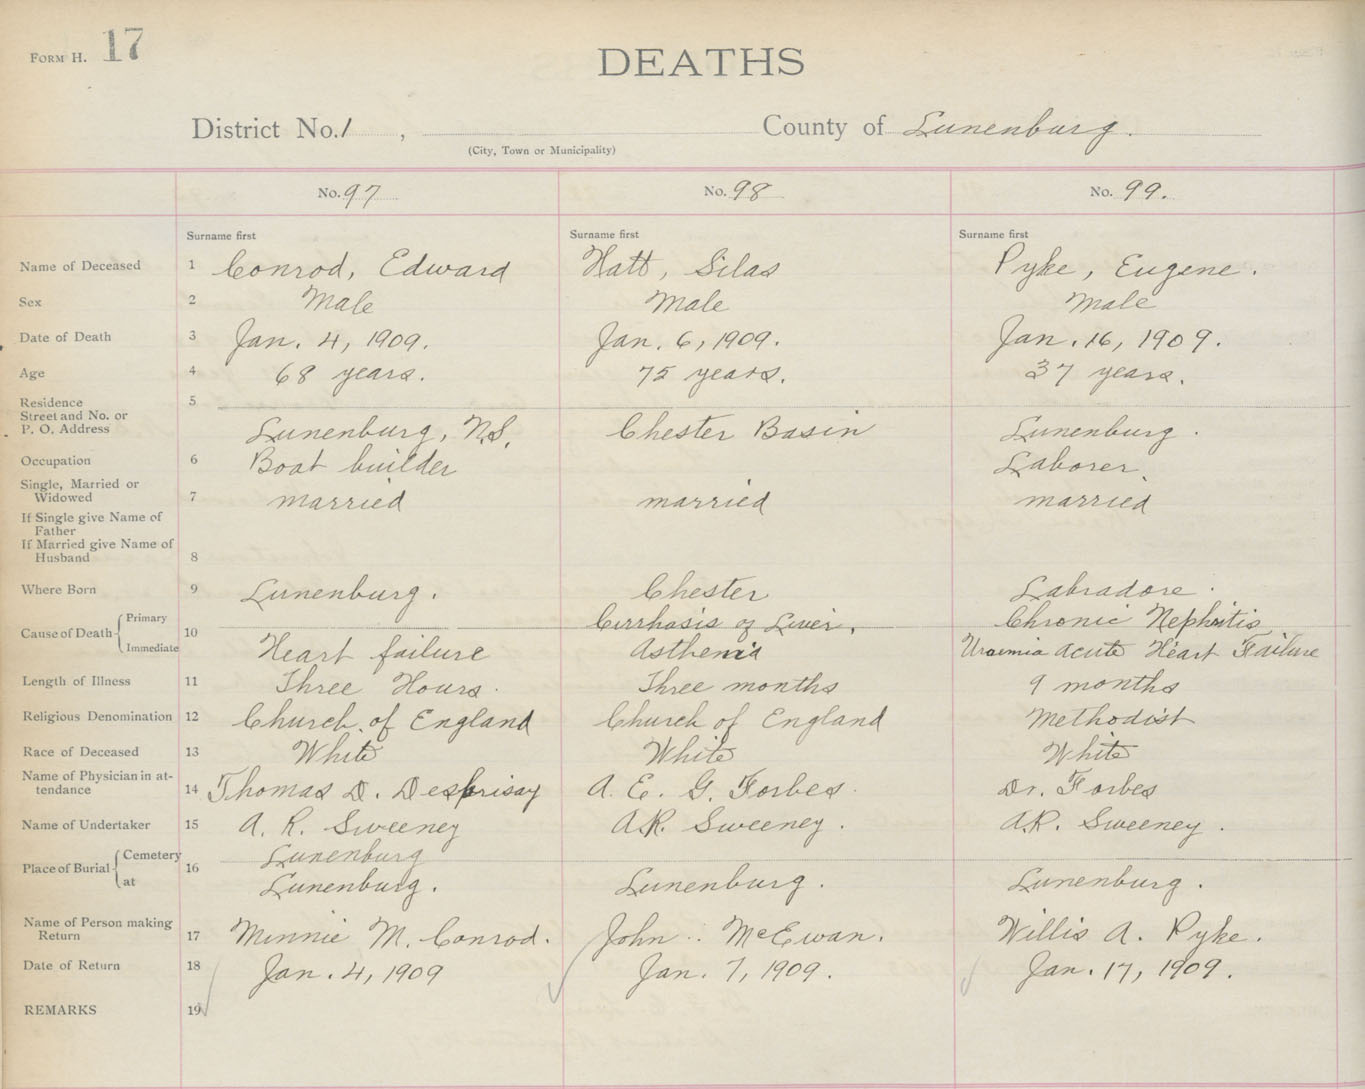 FORM H. 17
DEATHS
District No. 1 , County of Lunenburg.
(City, Town or Municipality)
No. 97 No. 98 No. 99.
Surname first Surname first Surname first
Name of Deceased 1 Conrod, Edward Hatt, Silas Pyke, Eugene.
Sex 2 Male Male Male
Date of Death 3 Jan. 4, 1909. Jan. 6, 1909. Jan. 16, 1909.
Age 4 68 years. 75 years. 37 years.
Residence 5
Street and No. or
P. O. Address Lunenburg, N.S. Chester Basin Lunenburg.
Occupation 6 Boat builder Laborer
Single, Married or
Widowed 7 married married married
If Single give Name of
Father
If Married give Name of
Husband 8
Where Born 9 Lunenburg. Chester Labradore.
Cause of Death Primary 10 Cirrhosis of Liver. Chronic Nephritis
Immediate Heart failure Asthenia Uraemia acute Heart Failure
Length of Illness 11 Three Hours. Three months 9 months
Religious Denomination 12 Church of England Church of England Methodist
Race of Deceased 13 White White White
Name of Physician in at-
tendance 14 Thomas D. Desbrisay A. E. G. Forbes. Dr. Forbes
Name of Undertaker 15 A. R. Sweeney A.R. Sweeney. A.R. Sweeney.
Place of Burial Cemetery 16 Lunenburg
at Lunenburg. Lunenburg. Lunenburg.
Name of Person making
Return 17 Minnie M. Conrod. John McEwan. Willis A. Pyke.
Date of Return 18 Jan. 4, 1909 Jan. 7, 1909. Jan. 17, 1909.
REMARKS 19